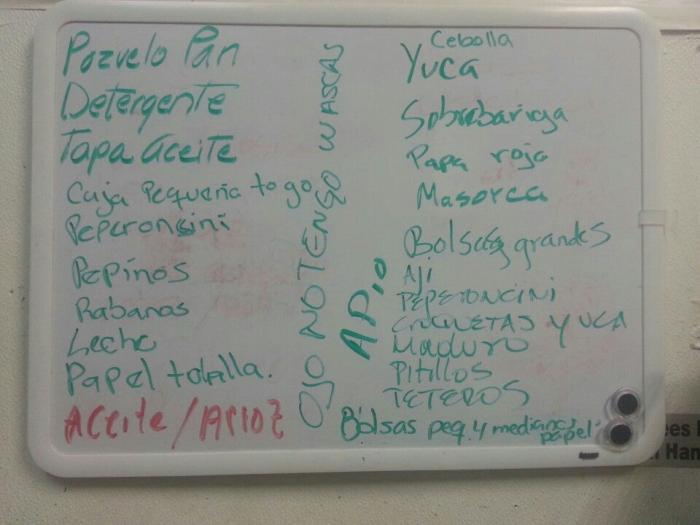 Pozuelo Pan
Detergente
Tapa aceite
Caja Pequeña to go
Peperoncini
Pepinos
Rabanos
Leche
Papel toballa.
Aceite/Arroz
OJO NO TENGO WASCAS
APio
Cebolla
Yuca
Sobrebarriga
Papa roja
Masorca
Bolsas grandes
AJi
PEPERONCINI
CROQUETAS YUCA
Maduro
Pitillos
TETEROS
Bolsas peq. y medianas papel
ees
Han